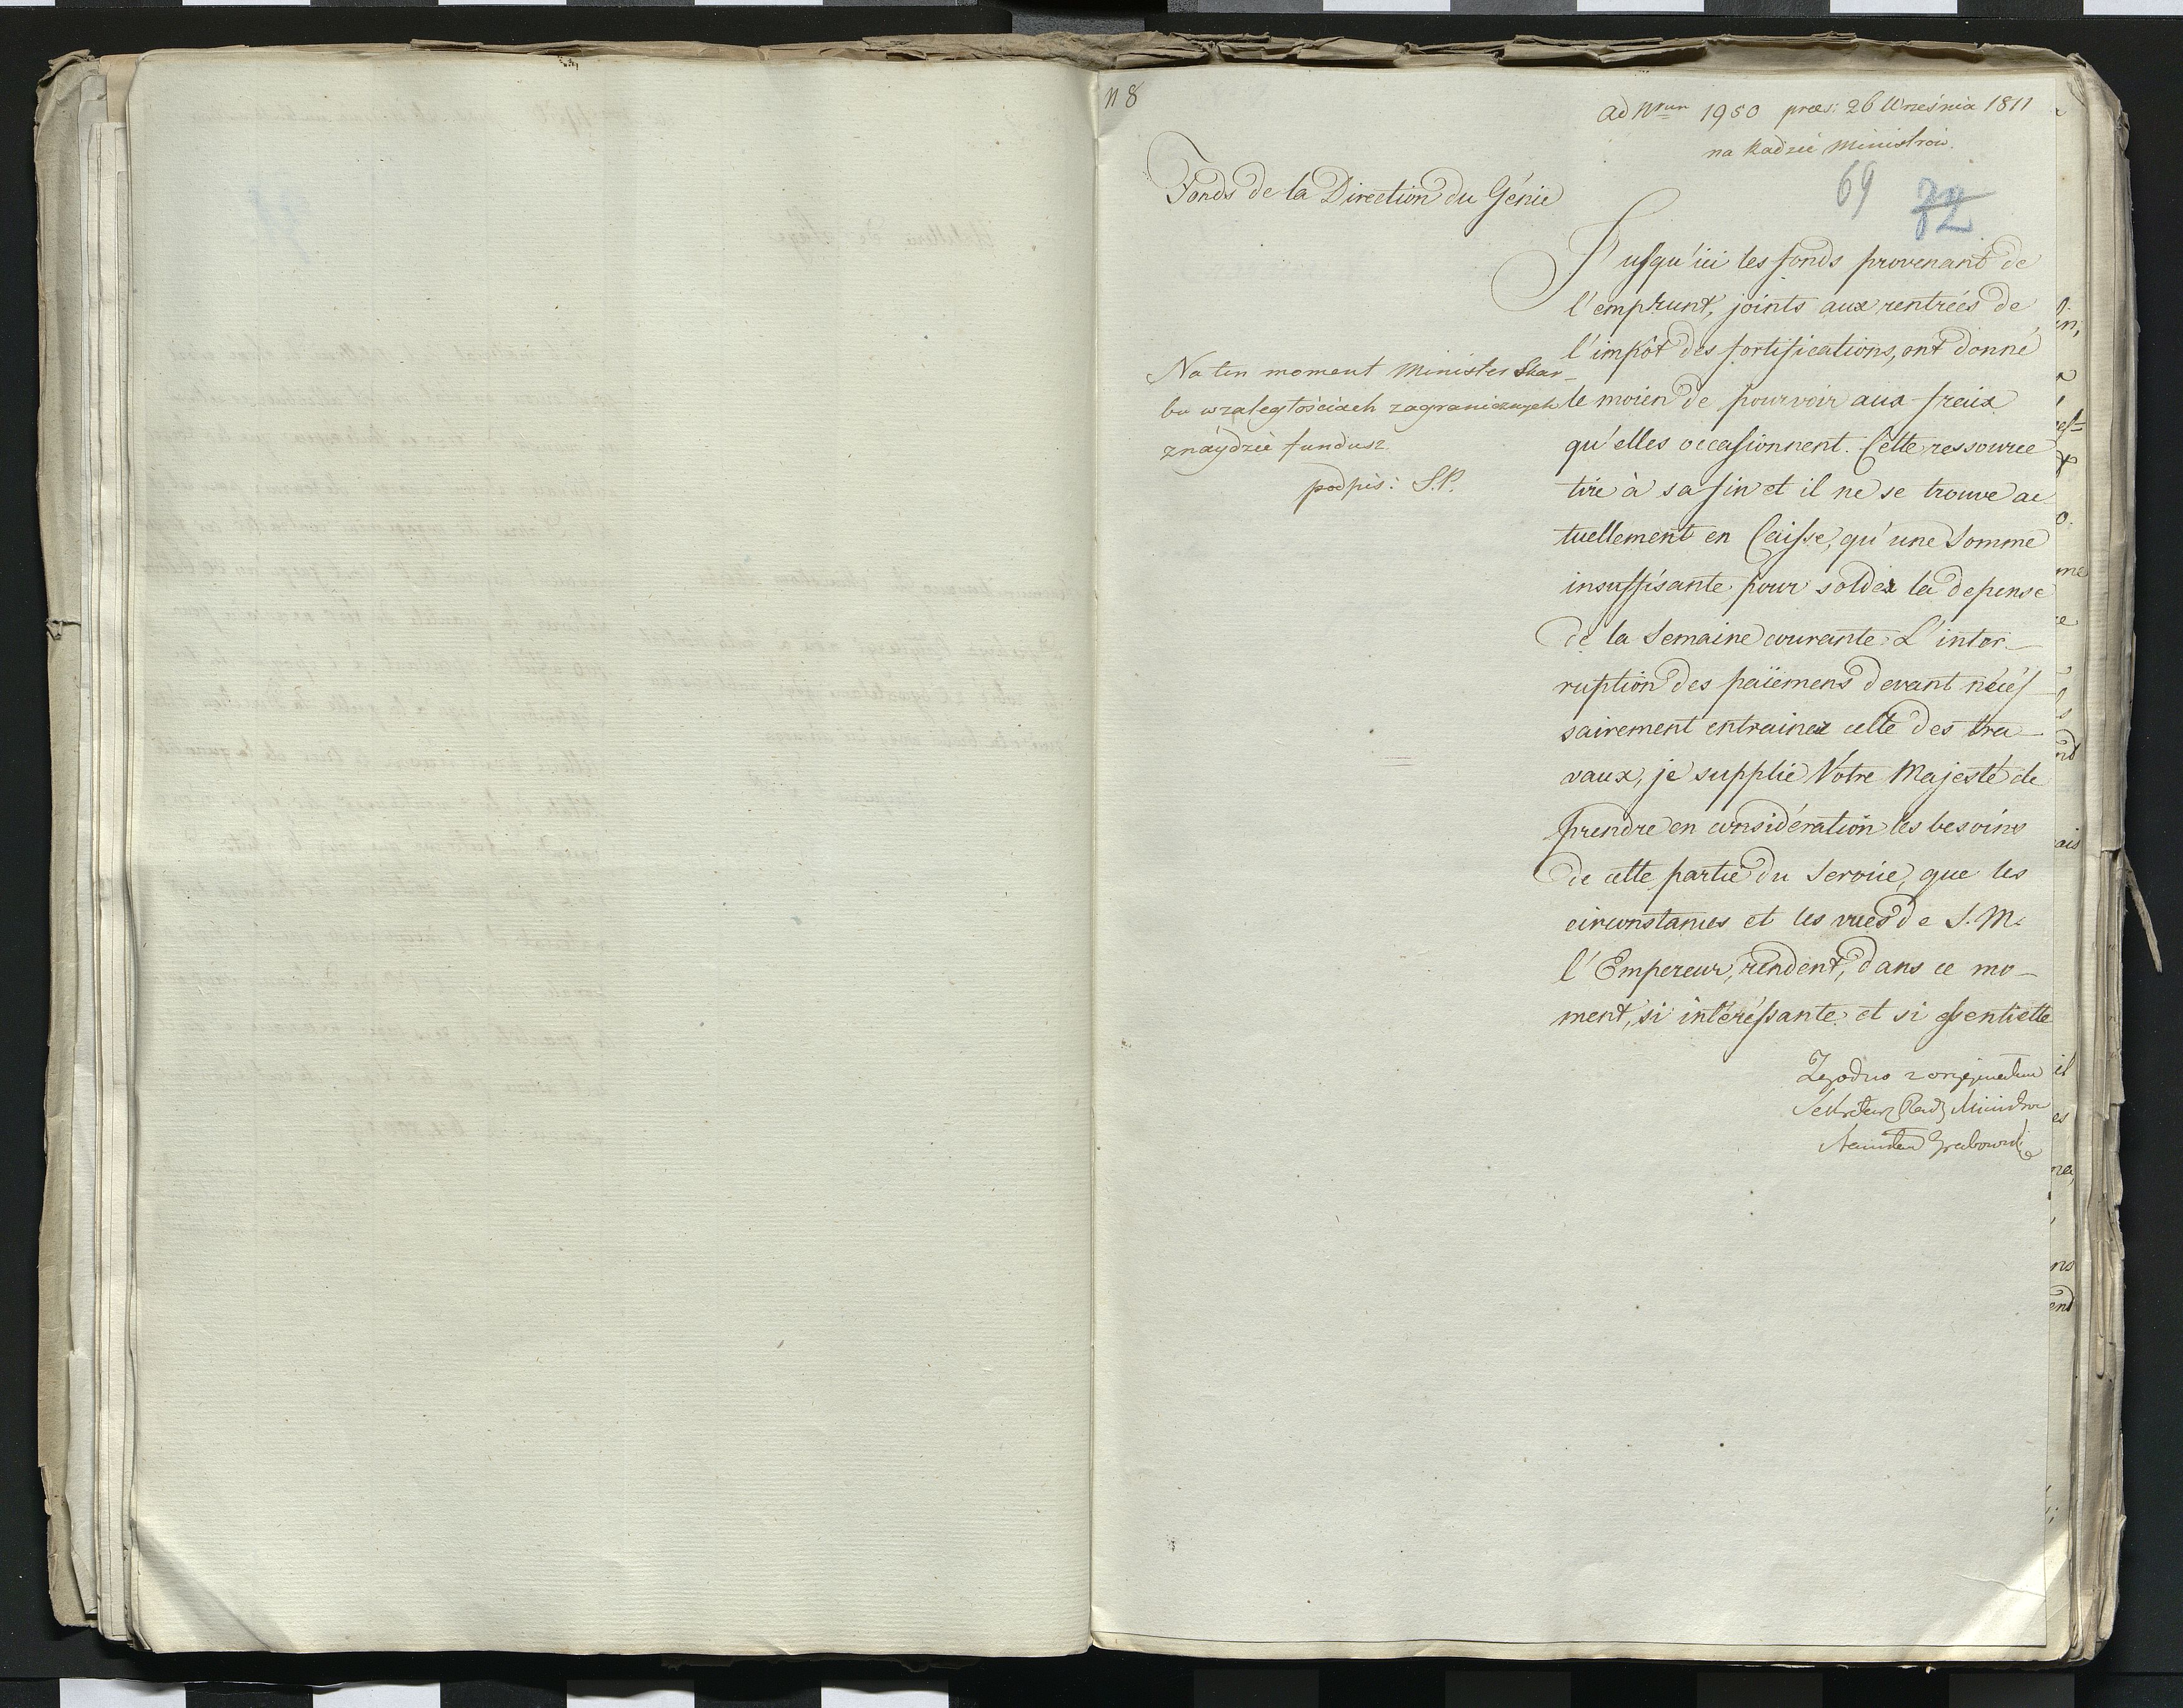 n 8
ad Nrum 1950 præs: 26 Września 1811
na Radzie Ministrów.
69 72
Fonds de la Direction du Génie
Jusqu'ici les fonds provenant de
l'emprunt, joints aux rentrées de
l'impôt des fortifications, ont donné
le moien de pourvoir aux fraix
qu'elles occasionnent. Cette ressource
tire à sa fin et il ne se trouve ac
tuellement en Caisse, qu'une Somme
insuffisante pour solder la depense
de la Semaine courante. L'inter-
ruption des païemens devant néces
sairement entrainer celle des tra-
vaux, je supplie Votre Majesté de
prendre en considération les besoins
de cette partie du Service, que les
circonstances et les vues de S. M.
l'Empereur, rendent, dans ce mo-
ment, si intéressante et si essentielle
Na ten moment Minister Skar-
bu w zaległościach zagranicznych
znaydzie fundusz.
podpis: S.P.
Zgodno z oryginałem
Sekretarz Rady Ministrów
Stanisław Grabowski